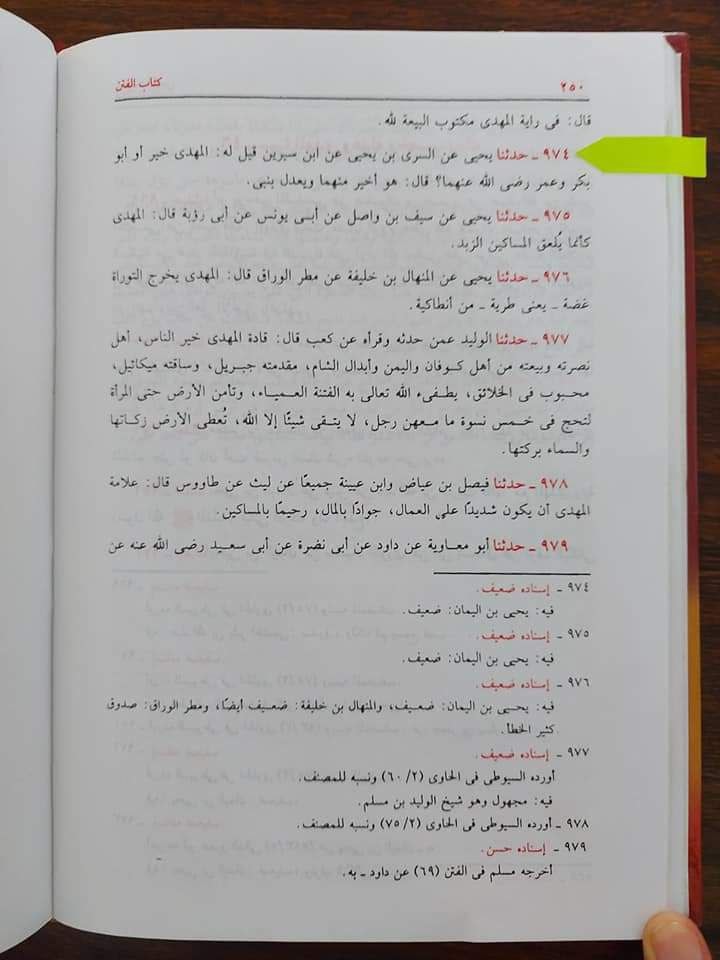 ٢٥٠
كتاب الفتن
قال: فى راية المهدى مكتوب البيعة لله.
٩٧٤ ـ حدثنا يحيى عن السرى بن يحيى عن ابن سيرين قيل له: المهدى خير أو أبو
بكر وعمر رضى الله عنهما؟ قال: هو أخير منهما ويعدل بنبى.
٩٧٥ ـ حدثنا يحيى عن سيف بن واصل عن أبى يونس عن أبى رؤبة قال: المهدى
كأنما يُلعق المساكين الزبد.
٩٧٦ ـ حدثنا يحيى عن المنهال بن خليفة عن مطر الوراق قال: المهدى يخرج التوراة
غضة ـ يعنى طرية ـ من أنطاكية.
٩٧٧ ـ حدثنا الوليد عمن حدثه وقرأه عن كعب قال: قادة المهدى خير الناس، أهل
نصرته وبيعته من أهل كوفان واليمن وأبدال الشام، مقدمته جبريل، وساقته ميكائيل،
محبوب فى الخلائق، يطفىء الله تعالى به الفتنة العمياء، وتأمن الأرض حتى المرأة
لتحج فى خمس نسوة ما معهن رجل، لا يتقى شيئًا إلا الله، تُعطى الأرض زكاتها
والسماء بركتها.
٩٧٨ ـ حدثنا فيصل بن عياض وابن عيينة جميعًا عن ليث عن طاووس قال: علامة
المهدى أن يكون شديدًا على العمال، جوادًا بالمال، رحيمًا بالمساكين.
٩٧٩ ـ حدثنا أبو معاوية عن داود عن أبى نضرة عن أبى سعيد رضى الله عنه عن
٩٧٤ ـ إسناده ضعيف.
فيه: يحيى بن اليمان: ضعيف.
٩٧٥ ـ إسناده ضعيف.
فيه: يحيى بن اليمان: ضعيف.
٩٧٦ ـ إسناده ضعيف.
فيه: يحيى بن اليمان: ضعيف، والمنهال بن خليفة: ضعيف أيضًا، ومطر الوراق: صدوق
كثير الخطأ.
٩٧٧ ـ إسناده ضعيف.
أورده السيوطى فى الحاوى (٢/ ٦٠) ونسبه للمصنف.
فيه: مجهول وهو شيخ الوليد بن مسلم.
٩٧٨ ـ أورده السيوطى فى الحاوى (٢/ ٧٥) ونسبه للمصنف.
٩٧٩ ـ إسناده حسن.
أخرجه مسلم فى الفتن (٦٩) عن داود ـ به.